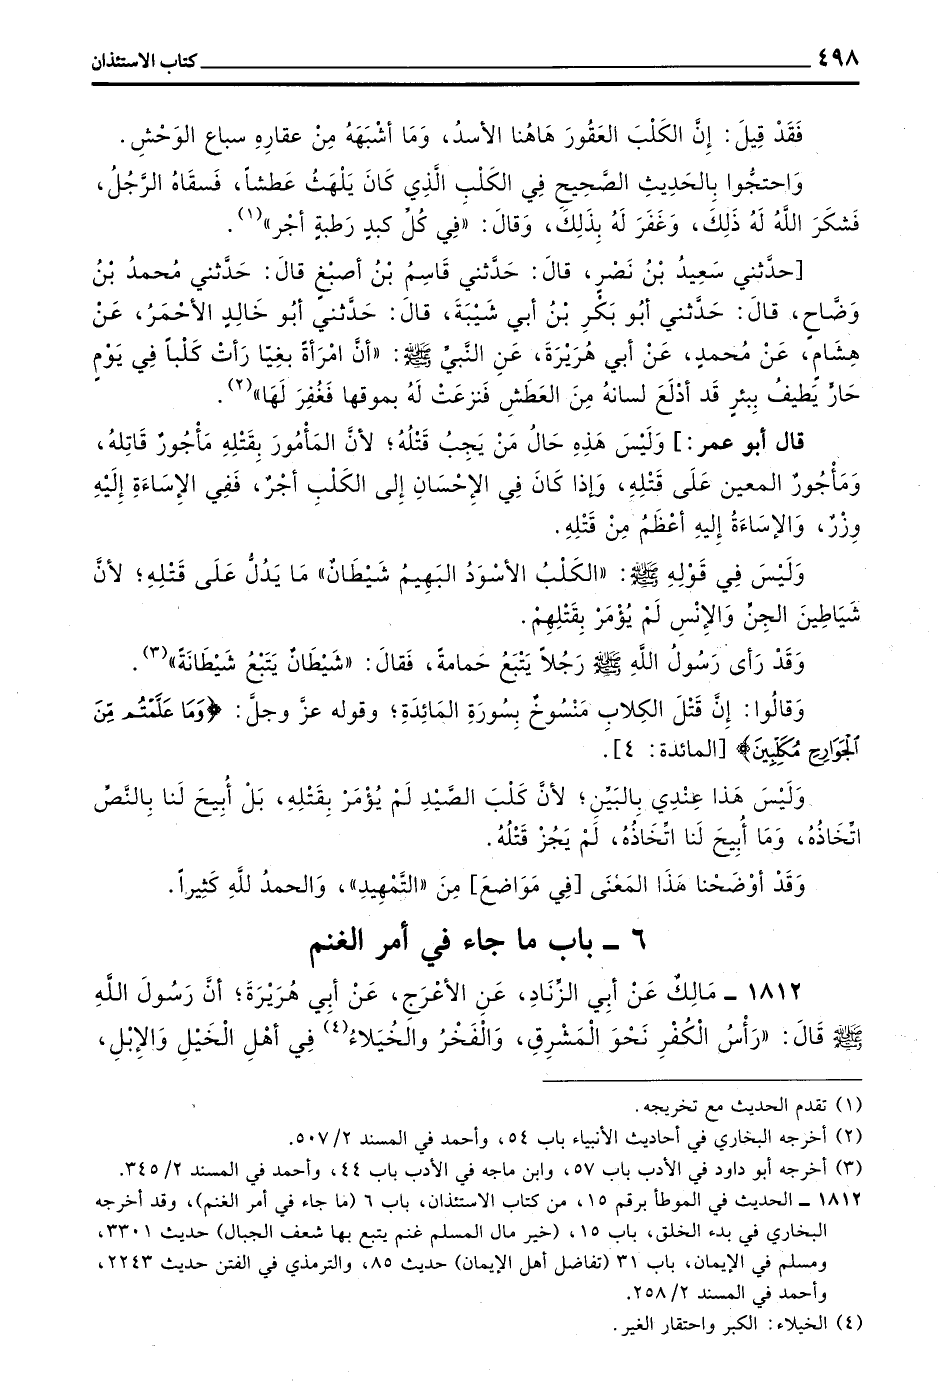 ٤٩٨ كتاب الاستئذان
فَقَدْ قِيلَ: إِنَّ الكَلْبَ العَقُورَ هَاهُنا الأسدُ، وَمَا أشْبَهَهُ مِنْ عقارِهِ سباع الوَحْشِ.
وَاحتجُّوا بِالحَدِيثِ الصَّحِيحِ فِي الكَلْبِ الَّذِي كَانَ يَلْهَثُ عَطشاً، فَسقَاهُ الرَّجُلُ،
فَشكَرَ اللَّهُ لَهُ ذَلِكَ، وَغَفَرَ لَهُ بِذَلِكَ، وَقالَ: «فِي كُلِّ كبدٍ رَطبةٍ أجْر»(١).
[حدَّثني سَعِيدُ بْنُ نَصْرٍ، قالَ: حَدَّثني قَاسِمُ بْنُ أصبْغٍ قالَ: حَدَّثني مُحمدُ بْنُ
وَضَّاحٍ، قالَ: حَدَّثني أبُو بَكْرِ بْنُ أبي شَيْبَةَ، قالَ: حَدَّثني أبُو خَالِدٍ الأحْمَرُ، عَنْ
هِشَامٍ، عَنْ مُحمدٍ، عَنْ أبي هُرَيْرَةَ، عَنِ النَّبيِّ ﷺ: «أنَّ امْرَأةً بغِيّا رَأتْ كَلْباً فِي يَوْمٍ
حَارٍّ يُطيفُ بِبئرٍ قَد أدْلَعَ لسانهُ مِنَ العَطَشِ فَنزعَتْ لَهُ بموقها فَغُفِرَ لَهَا»(٢).
قال أبو عمر:] وَلَيْسَ هَذِهِ حَالُ مَنْ يَجِبُ قَتْلُهُ؛ لأنَّ المَأْمُورَ بِقَتْلِهِ مَأْجُورٌ قَاتِلهُ،
وَمَأْجُورٌ المعين عَلَى قَتْلِهِ، وَإذا كَانَ فِي الإحْسَانِ إلى الكَلْبِ أجْرٌ، فَفِي الإسَاءَةِ إلَيْهِ
وِزْرٌ، وَالإسَاءَةُ إليهِ أعْظَمُ مِنْ قَتْلِهِ.
وَلَيْسَ فِي قَوْلِهِ ﷺ: «الكَلْبُ الأسْوَدُ البَهِيمُ شَيْطَانٌ» مَا يَدُلُّ عَلَى قَتْلِهِ؛ لأنَّ
شَيَاطِينَ الجِنِّ وَالإنْسِ لَمْ يُؤْمَرْ بِقَتْلِهِمْ.
وَقَدْ رَأى رَسُولُ اللَّهِ ﷺ رَجُلاً يَتْبَعُ حَمامةً، فَقالَ: «شَيْطَانٌ يَتَبْعُ شَيْطَانَةً»(٣).
وَقالُوا: إنَّ قَتْلَ الكِلابِ مَنْسُوخٌ بِسُورَةِ المَائِدَةِ؛ وقوله عزَّ وجلَّ: ﴿وَمَا عَلَّمْتُم مِّنَ
ٱلْجَوَارِحِ مُكَلِّبِينَ﴾ [المائدة: ٤].
وَلَيْسَ هَذا عِنْدِي بِالبَيِّنِ؛ لأنَّ كَلْبَ الصَّيْدِ لَمْ يُؤْمَرْ بِقَتْلِهِ، بَلْ أُبِيحَ لَنا بِالنَّصِّ
اتِّخَاذُهُ، وَمَا أُبِيحَ لَنا اتِّخَاذُهُ، لَمْ يَجُزْ قَتْلُهُ.
وَقَدْ أوْضَحْنا هَذَا المَعْنَى [فِي مَوَاضعَ] مِنَ «التَّمْهِيدِ»، وَالحمدُ للَّهِ كَثِيراً.
٦ ـ باب ما جاء في أمر الغنم
١٨١٢ ـ مَالِكٌ عَنْ أَبِي الزِّنَادِ، عَنِ الأَعْرَجِ، عَنْ أَبِي هُرَيْرَةَ؛ أَنَّ رَسُولَ اللَّهِ
ﷺ قَالَ: «رَأْسُ الْكُفْرِ نَحْوَ الْمَشْرِقِ، وَالْفَخْرُ والْخُيَلاءُ(٤) فِي أَهْلِ الْخَيْلِ وَالإبْلِ،
(١) تقدم الحديث مع تخريجه.
(٢) أخرجه البخاري في أحاديث الأنبياء باب ٥٤، وأحمد في المسند ٢/ ٥٠٧.
(٣) أخرجه أبو داود في الأدب باب ٥٧، وابن ماجه في الأدب باب ٤٤، وأحمد في المسند ٢/ ٣٤٥.
١٨١٢ ـ الحديث في الموطأ برقم ١٥، من كتاب الاستئذان، باب ٦ (ما جاء في أمر الغنم)، وقد أخرجه
البخاري في بدء الخلق، باب ١٥، (خير مال المسلم غنم يتبع بها شعف الجبال) حديث ٣٣٠١،
ومسلم في الإيمان، باب ٣١ (تفاضل أهل الإيمان) حديث ٨٥، والترمذي في الفتن حديث ٢٢٤٣،
وأحمد في المسند ٢/ ٢٥٨.
(٤) الخيلاء: الكبر واحتقار الغير.